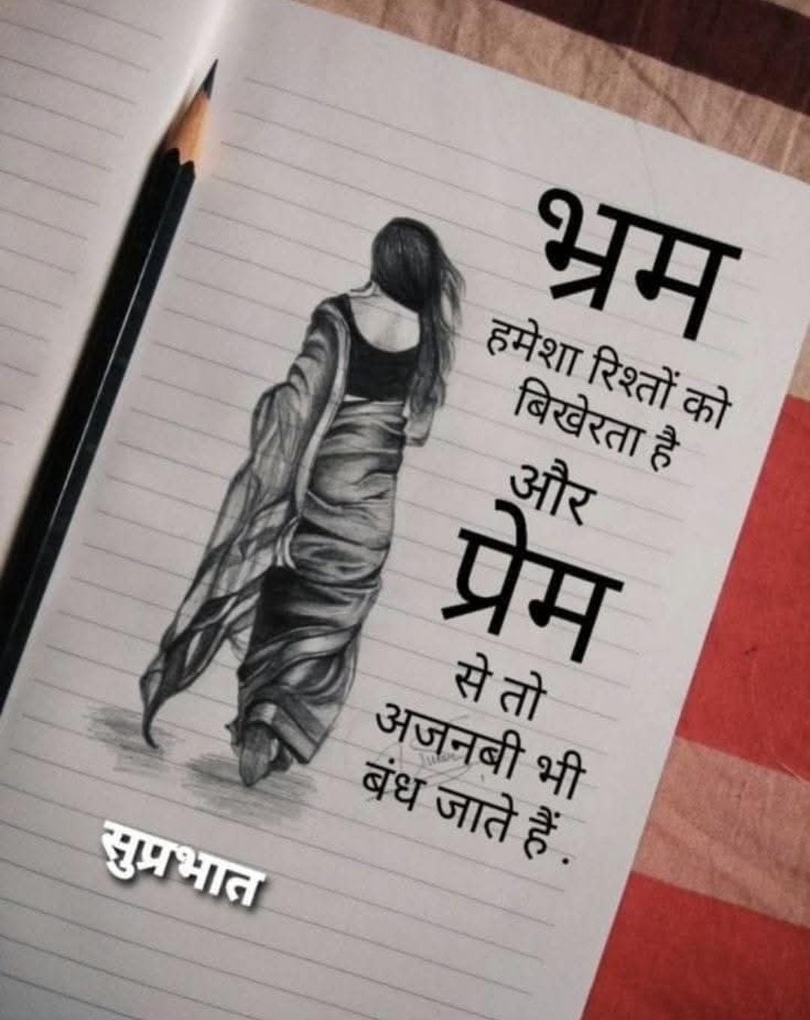 भ्रम
हमेशा रिश्तों को
बिखेरता है
और
प्रेम
से तो
अजनबी भी
बंध जाते हैं .
सुप्रभात